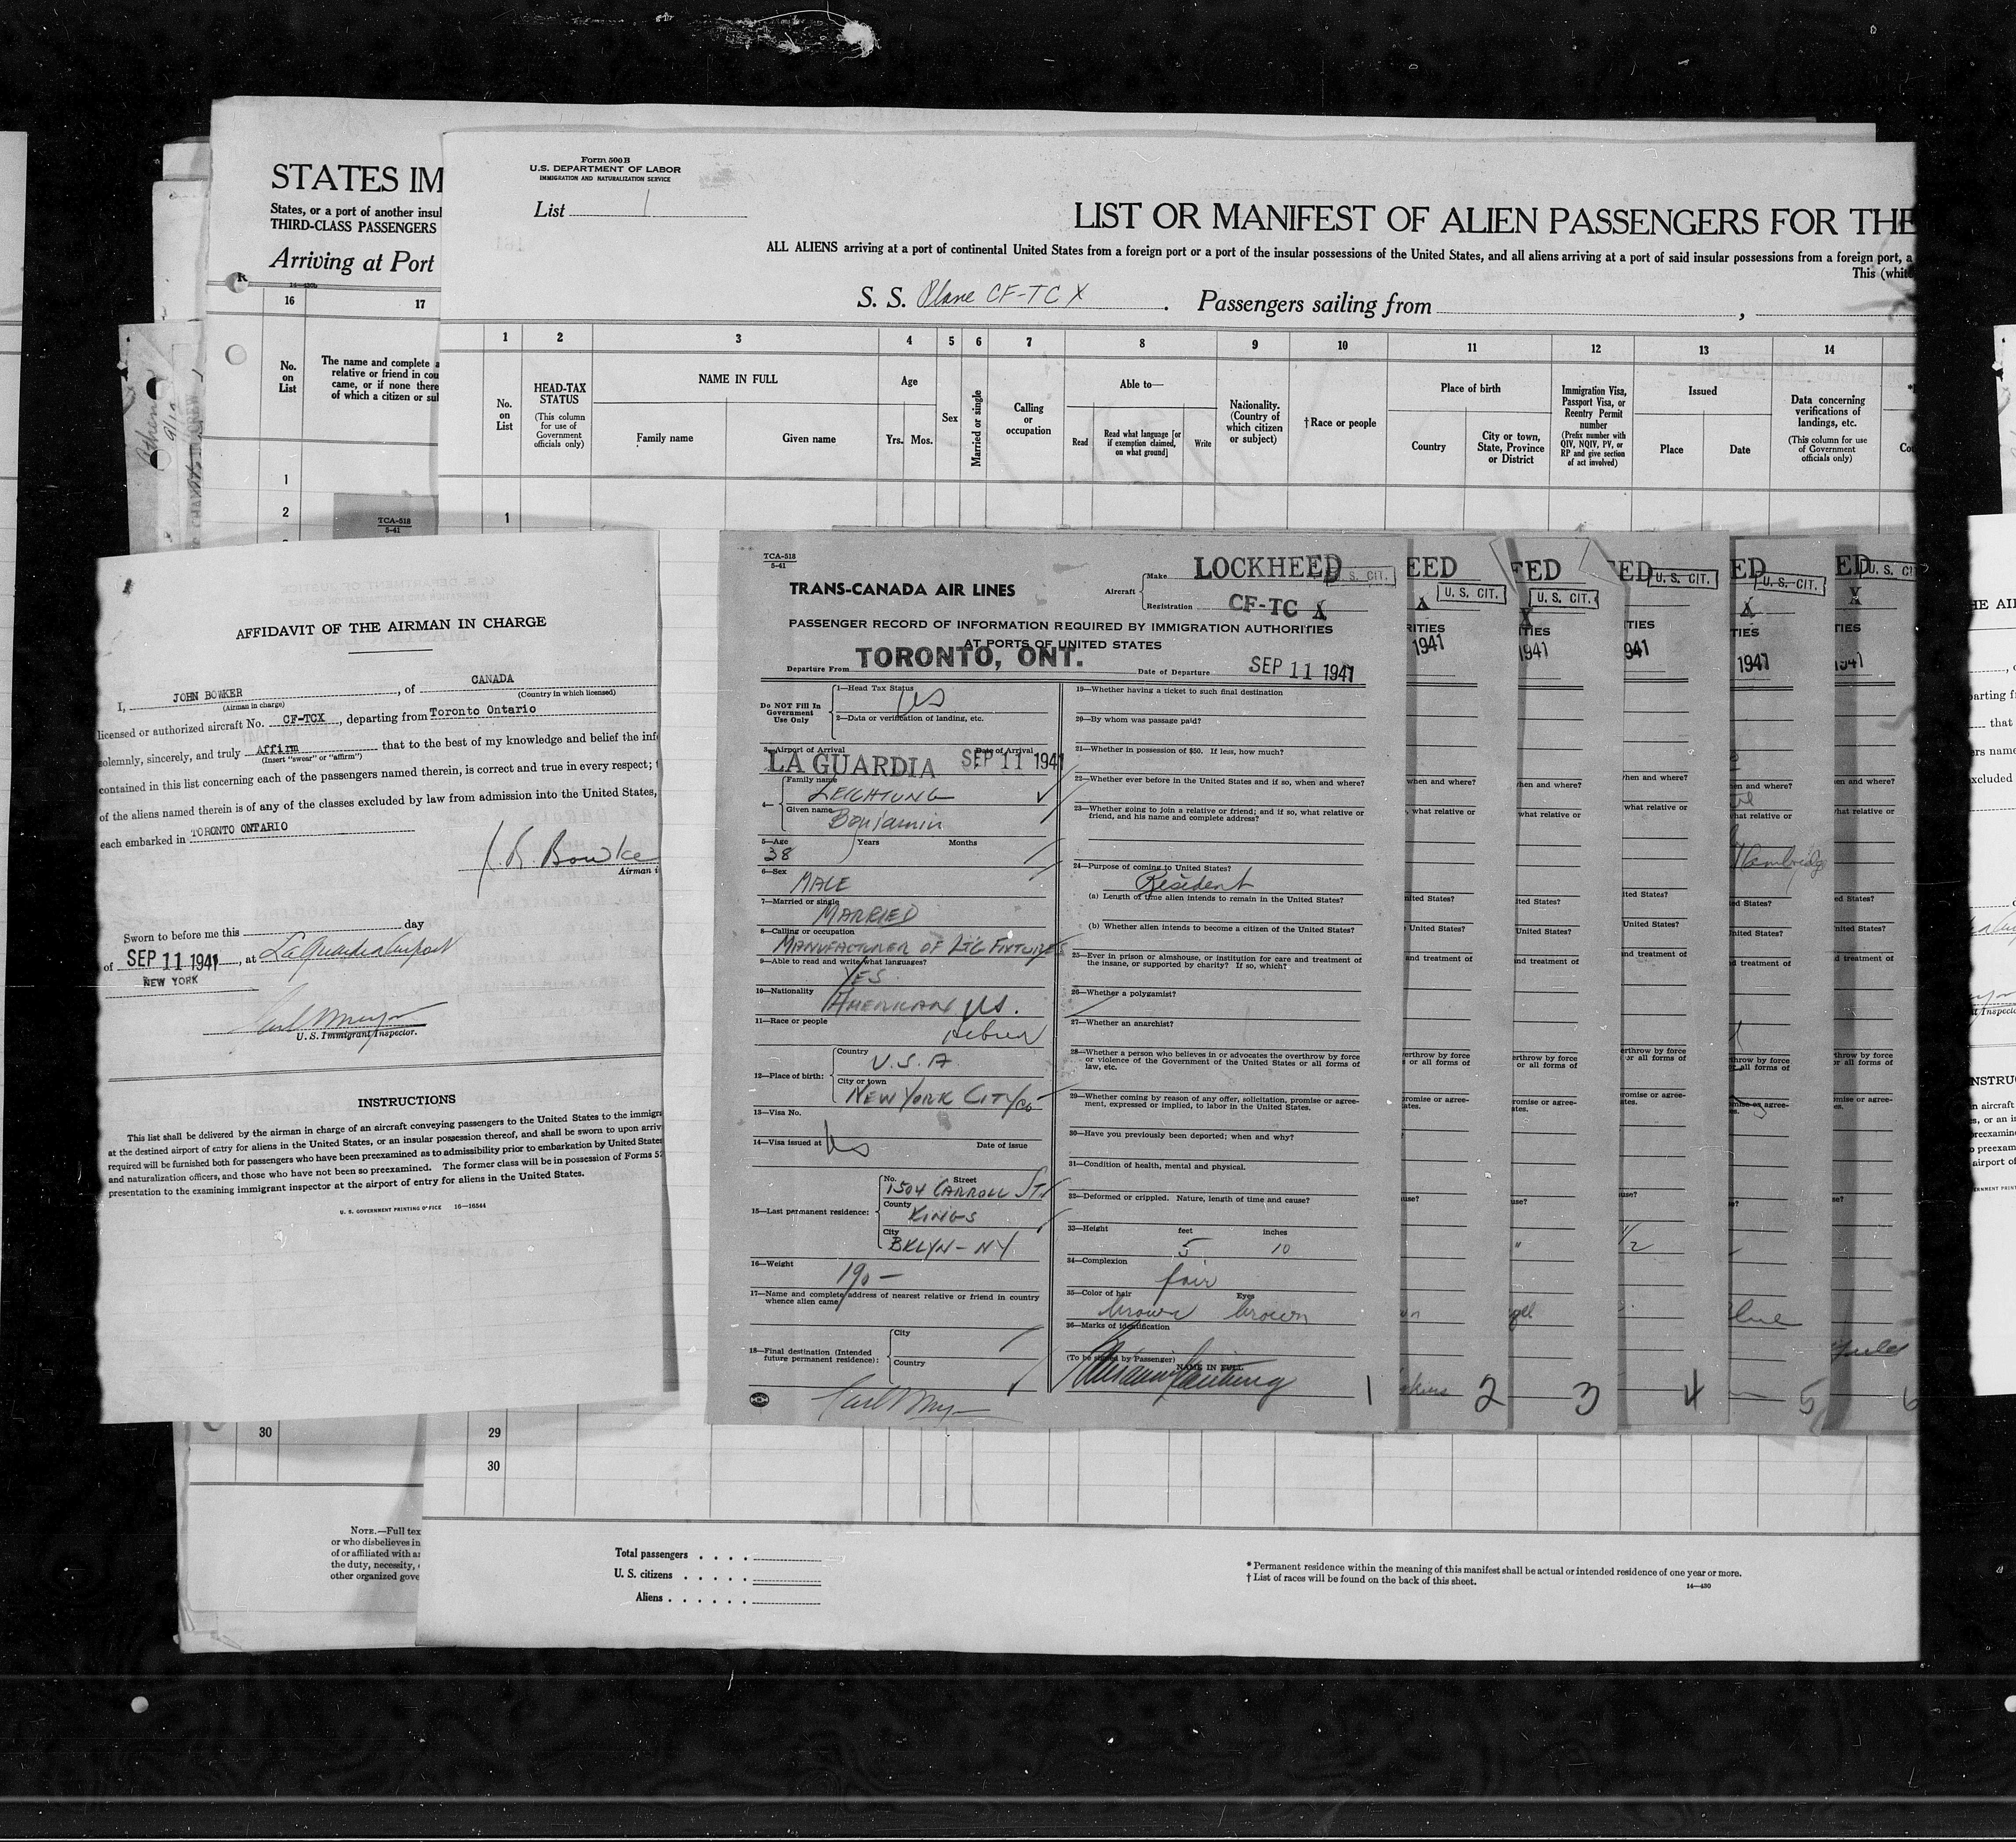 STATES IM
States, or a port of another insul
THIRD-CLASS PASSENGERS
Arriving at Port
14-430b
16 17
No. on List
The name and complete a
relative or friend in cou
came, or if none there
of which a citizen or sul
1
2
TCA-518
5-41
Form 500 B
U.S. DEPARTMENT OF LABOR
IMMIGRATION AND NATURALIZATION SERVICE
List 1
LIST OR MANIFEST OF ALIEN PASSENGERS FOR THE
ALL ALIENS arriving at a port of continental United States from a foreign port or a port of the insular possessions of the United States, and all aliens arriving at a port of said insular possessions from a foreign port, a
This (white
S. S. Plane CF-TCX. Passengers sailing from ,
1 2 3 4 5 6 7 8 9 10 11 12 13 14
No. on List
HEAD-TAX STATUS
(This column for use of Government officials only)
NAME IN FULL
Family name Given name
Age
Yrs. Mos.
Sex
Married or single
Calling or occupation
Able to—
Read
Read what language [or if exemption claimed, on what ground]
Write
Nationality. (Country of which citizen or subject)
†Race or people
Place of birth
Country
City or town, State, Province or District
Immigration Visa, Passport Visa, or Reentry Permit number
(Prefix number with QIV, NQIV, PV, or RP and give section of act involved)
Issued
Place Date
Data concerning verifications of landings, etc.
(This column for use of Government officials only)
1
AFFIDAVIT OF THE AIRMAN IN CHARGE
I, JOHN BOWKER, of CANADA
(Airman in charge) (Country in which licensed)
licensed or authorized aircraft No. CF-TCX, departing from Toronto Ontario
solemnly, sincerely, and truly Affirm that to the best of my knowledge and belief the inf
(Insert "swear" or "affirm")
contained in this list concerning each of the passengers named therein, is correct and true in every respect;
of the aliens named therein is of any of the classes excluded by law from admission into the United States,
each embarked in TORONTO ONTARIO
Bowke
Airman i
Sworn to before me this day
of SEP 11 1941, at LaGuardia Airport
NEW YORK
U. S. Immigrant Inspector.
INSTRUCTIONS
This list shall be delivered by the airman in charge of an aircraft conveying passengers to the United States to the immigra
at the destined airport of entry for aliens in the United States, or an insular possession thereof, and shall be sworn to upon arriv
required will be furnished both for passengers who have been preexamined as to admissibility prior to embarkation by United States
and naturalization officers, and those who have not been so preexamined. The former class will be in possession of Forms 5
presentation to the examining immigrant inspector at the airport of entry for aliens in the United States.
U. S. GOVERNMENT PRINTING OFFICE 16—16544
TCA-518
5-41
TRANS-CANADA AIR LINES
Aircraft
Make LOCKHEED
U. S. CIT.
Registration CF-TC X
PASSENGER RECORD OF INFORMATION REQUIRED BY IMMIGRATION AUTHORITIES
AT PORTS OF UNITED STATES
Departure From TORONTO, ONT. Date of Departure SEP 11 1941
Do NOT Fill In Government Use Only
1—Head Tax Status US
2—Data or verification of landing, etc.
3—Airport of Arrival LA GUARDIA Date of Arrival SEP 11 1941
4—
Family name LEICHTUNG
Given name Benjamin
5—Age 38 Years Months
6—Sex MALE
7—Married or single MARRIED
8—Calling or occupation
MANUFACTURER OF LTG FIXTURES
9—Able to read and write what languages?
YES
10—Nationality AMERICAN US.
11—Race or people Hebrew
12—Place of birth:
Country U.S.A.
City or town NEW YORK CITY
13—Visa No.
14—Visa issued at US Date of issue
15—Last permanent residence:
No. Street 1504 CARROLL ST.
County KINGS
City BKLYN - NY
16—Weight 190 —
17—Name and complete address of nearest relative or friend in country
whence alien came
City
Country
18—Final destination (Intended
future permanent residence):
19—Whether having a ticket to such final destination
20—By whom was passage paid?
21—Whether in possession of $50. If less, how much?
22—Whether ever before in the United States and if so, when and where?
23—Whether going to join a relative or friend; and if so, what relative or
friend, and his name and complete address?
24—Purpose of coming to United States?
Resident
(a) Length of time alien intends to remain in the United States?
(b) Whether alien intends to become a citizen of the United States?
25—Ever in prison or almshouse, or institution for care and treatment of
the insane, or supported by charity? If so, which?
26—Whether a polygamist?
27—Whether an anarchist?
28—Whether a person who believes in or advocates the overthrow by force
or violence of the Government of the United States or all forms of
law, etc.
29—Whether coming by reason of any offer, solicitation, promise or agree-
ment, expressed or implied, to labor in the United States.
30—Have you previously been deported; when and why?
31—Condition of health, mental and physical.
32—Deformed or crippled. Nature, length of time and cause?
33—Height feet 5 inches 10
34—Complexion fair
35—Color of hair brown Eyes brown
36—Marks of identification
(To be signed by Passenger) NAME IN FULL
1 2 3 4 5 6
30
29
30
NOTE.—Full tex
or who disbelieves in
of or affiliated with a
the duty, necessity,
other organized gove
Total passengers
U. S. citizens
Aliens
* Permanent residence within the meaning of this manifest shall be actual or intended residence of one year or more.
† List of races will be found on the back of this sheet.
14—430